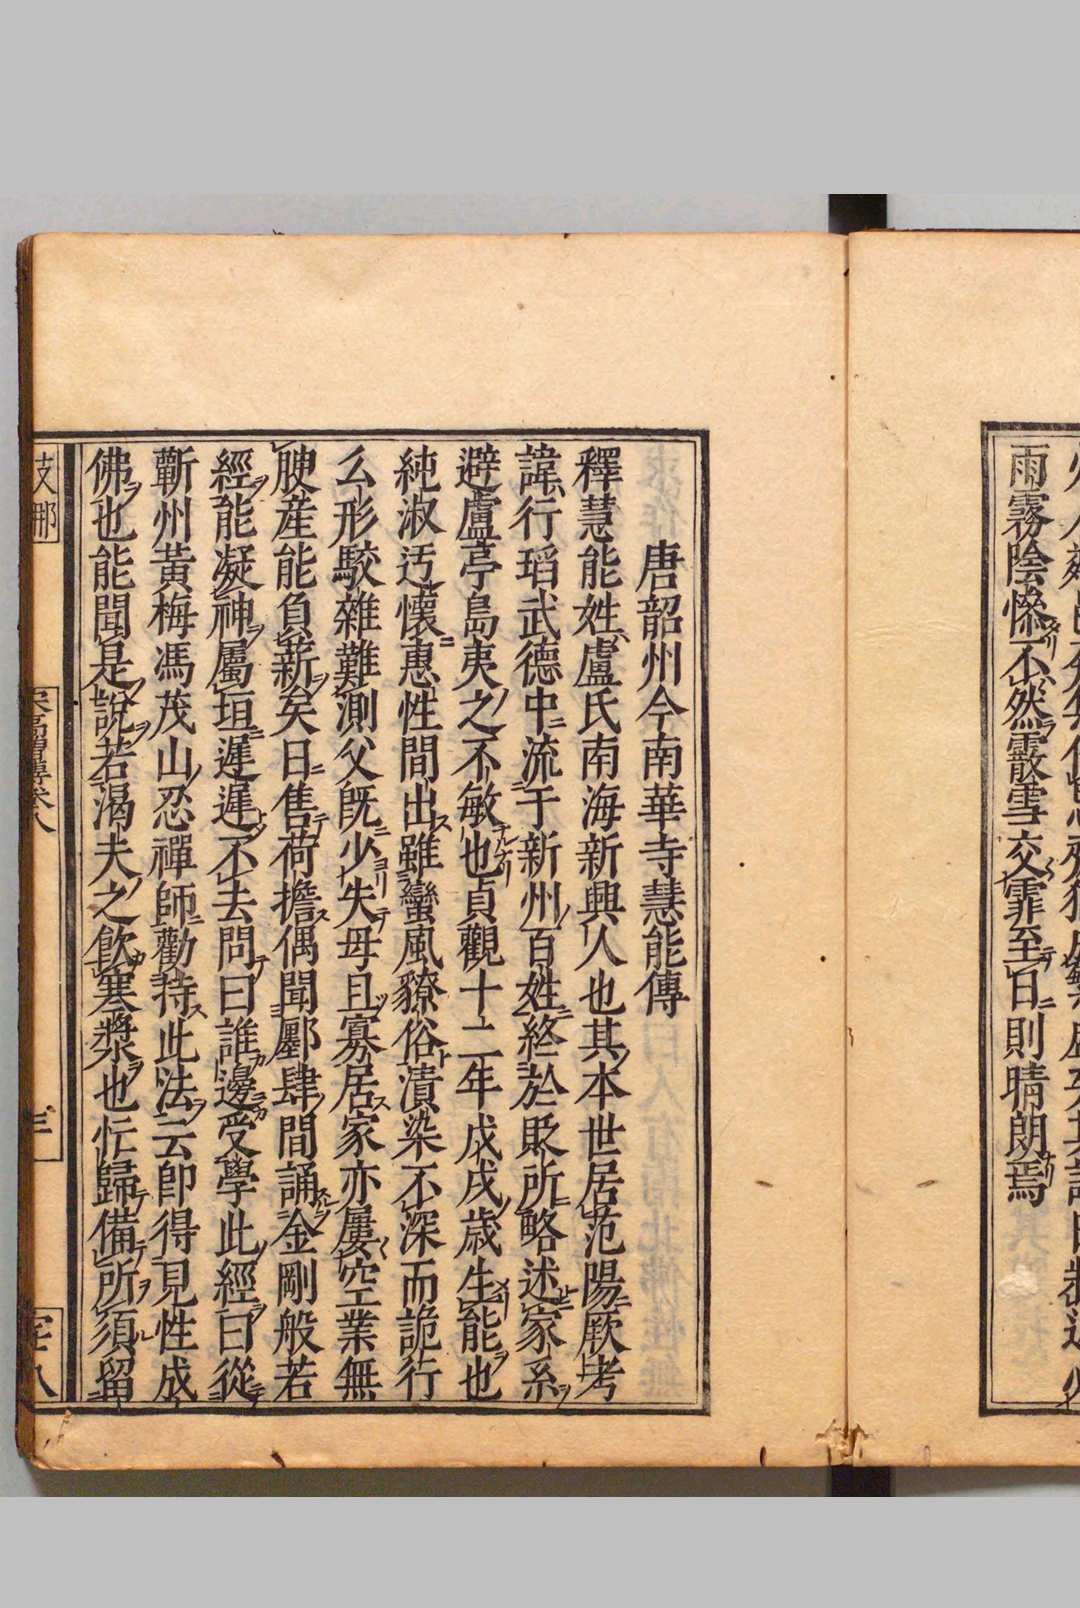 雨霧陰慘不然霰雪交霏至日則晴朗焉
唐韶州今南華寺慧能傳
釋慧能姓盧氏南海新興人也其本世居范陽厥考
諱行瑫武德中流于新州百姓終於貶所略述家系
避盧亭島夷之不敏也貞觀十二年戊戌歲生能也
純淑迃懷惠性間出雖蠻風獠俗漬染不深而詭行
么形駮雜難測父既少失母且寡居家亦屢空業無
腴產能負薪矣日售荷擔偶聞鄽肆間誦金剛般若
經能凝神屬垣遲遲不去問曰誰邊受學此經曰從
蘄州黃梅馮茂山忍禪師勸持此法云即得見性成
佛也能聞是說若渴夫之飲寒漿也忙歸備所須留
支那
宋高僧傳卷八
三